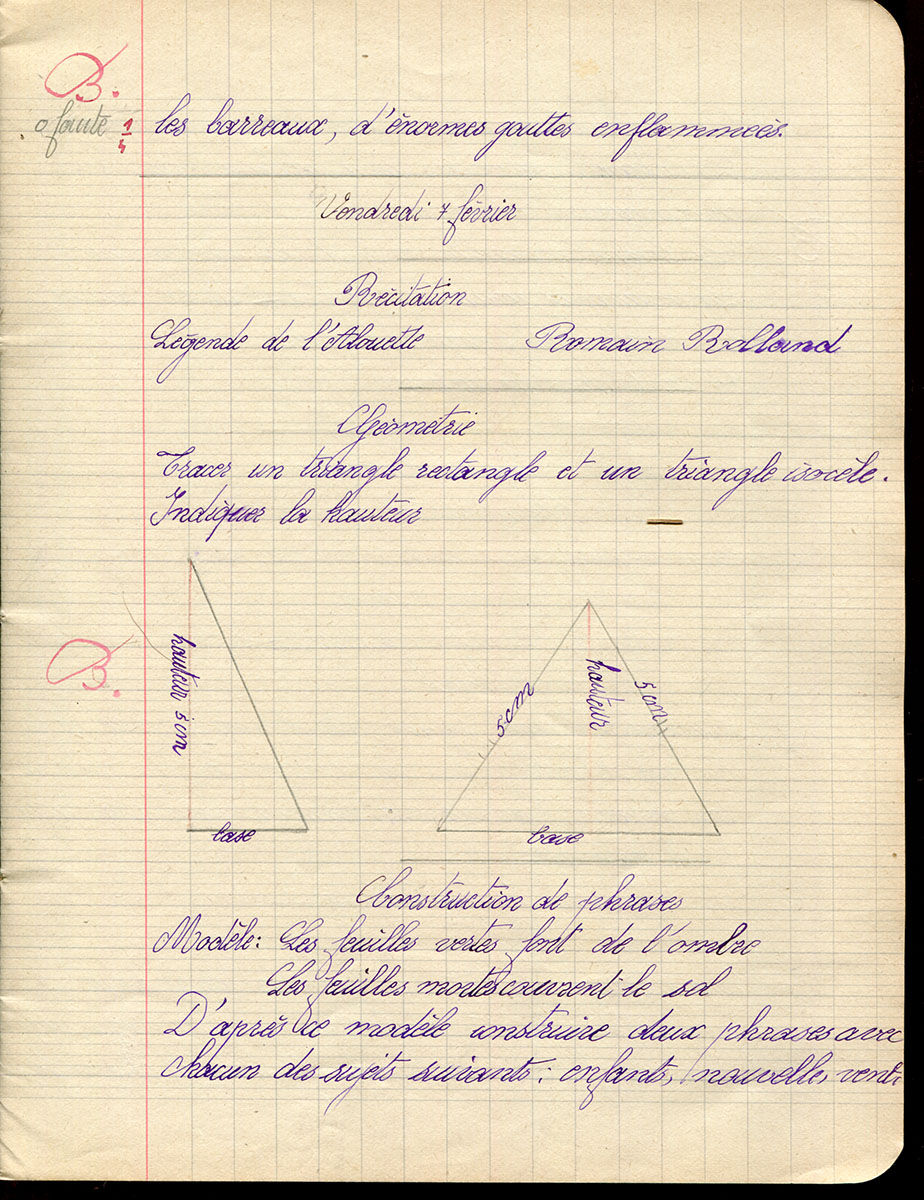 B.
0 faute 1/4
les barreaux, d'énormes gouttes enflammées.
Vendredi 7 février
Récitation
Légende de l'Alouette Romain Rolland
Géométrie
Tracer un triangle rectangle et un triangle isocèle.
Indiquer la hauteur
B.
hauteur 5 cm
base
5 cm
hauteur
5 cm
base
Construction de phrases
Modèle: Les feuilles vertes font de l'ombre
Les feuilles mortes couvrent le sol
D'après ce modèle construire deux phrases avec
chacun des sujets suivants : enfants, nouvelles, vent.